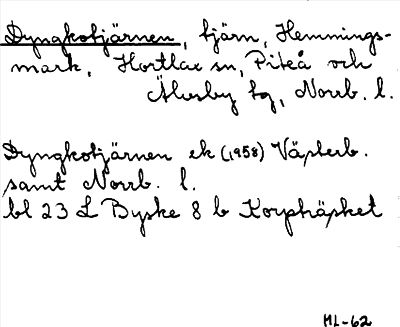 Dyngkotjärnen, tjärn, Hemmings-
mark, Hortlax sn, Piteå och
Älvsby tg, Norrb. l.
Dyngkotjärnen ek (1958) Västerb.
samt Norrb. l.
bl 23 L Byske 8 b Korphäsket
ML-62